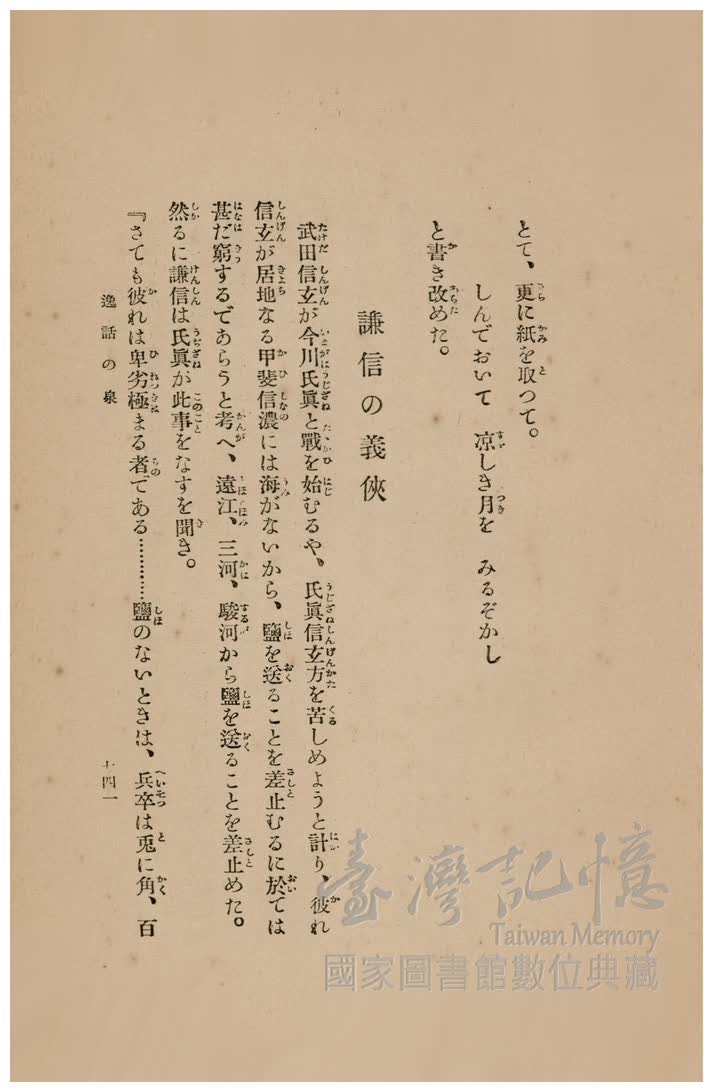 とて、更に紙を取つて。
しんでおいて 凉しき月を みるぞかし
と書き改めた。
謙信の義俠
武田信玄が今川氏眞と戰を始むるや、氏眞信玄方を苦しめようと計り、彼れ
信玄が居地なる甲斐信濃には海がないから、鹽を送ることを差止むるに於ては
甚だ窮するであらうと考へ、遠江、三河、駿河から鹽を送ることを差止めた。
然るに謙信は氏眞が此事をなすを聞き。
『さても彼れは卑劣極まる者である…………鹽のないときは、兵卒は兎に角、百
逸話の泉
十四一
臺灣記憶
Taiwan Memory
國家圖書館數位典藏